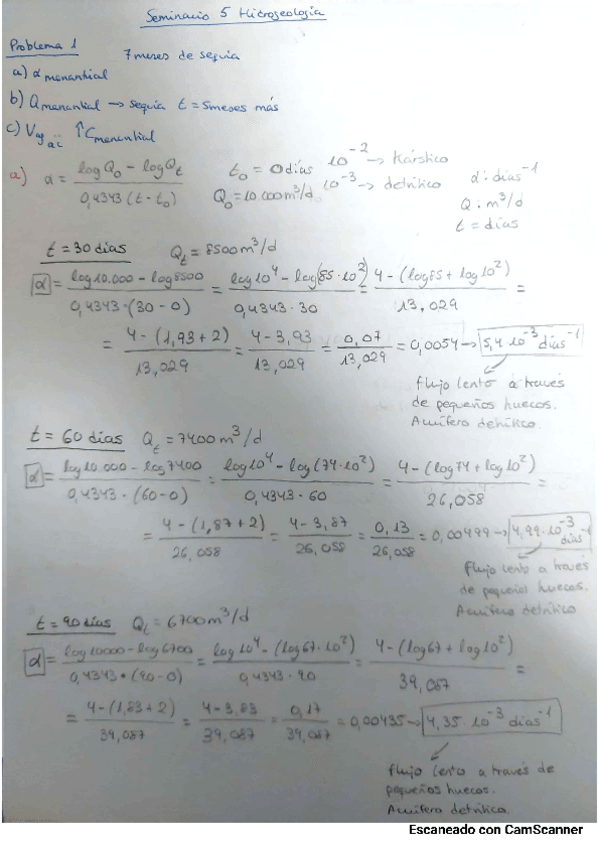 Seminario 5 Hidrogeología
Problema 1 7 meses de sequía
a) α manantial
b) Q manantial → sequía t = 5 meses más
c) V ↑C manantial
a) α = (log Q₀ - log Qt) / (0,4343 (t - t₀)) t₀ = 0 días 10⁻² → Kárstico α: días⁻¹
Q₀ = 10.000 m³/d 10⁻³ → detrítico Q: m³/d
t = días
t = 30 días Qt = 8500 m³/d
α = (log 10.000 - log 8500) / (0,4343 · (30 - 0)) = (log 10⁴ - log (85 · 10²)) / (0,4343 · 30) = (4 - (log 85 + log 10²)) / 13,029 =
= (4 - (1,93 + 2)) / 13,029 = (4 - 3,93) / 13,029 = 0,07 / 13,029 = 0,0054 → 5,4 · 10⁻³ días⁻¹
flujo lento a través
de pequeños huecos.
Acuífero detrítico.
t = 60 días Qt = 7400 m³/d
α = (log 10.000 - log 7400) / (0,4343 · (60 - 0)) = (log 10⁴ - log (74 · 10²)) / (0,4343 · 60) = (4 - (log 74 + log 10²)) / 26,058 =
= (4 - (1,87 + 2)) / 26,058 = (4 - 3,87) / 26,058 = 0,13 / 26,058 = 0,00499 → 4,99 · 10⁻³ días⁻¹
flujo lento a través
de pequeños huecos.
Acuífero detrítico
t = 90 días Qt = 6700 m³/d
α = (log 10000 - log 6700) / (0,4343 · (90 - 0)) = (log 10⁴ - (log 67 · 10²)) / (0,4343 · 90) = (4 - (log 67 + log 10²)) / 39,087 =
= (4 - (1,83 + 2)) / 39,087 = (4 - 3,83) / 39,087 = 0,17 / 39,087 = 0,00435 → 4,35 · 10⁻³ días⁻¹
flujo lento a través de
pequeños huecos.
Acuífero detrítico.
Escaneado con CamScanner